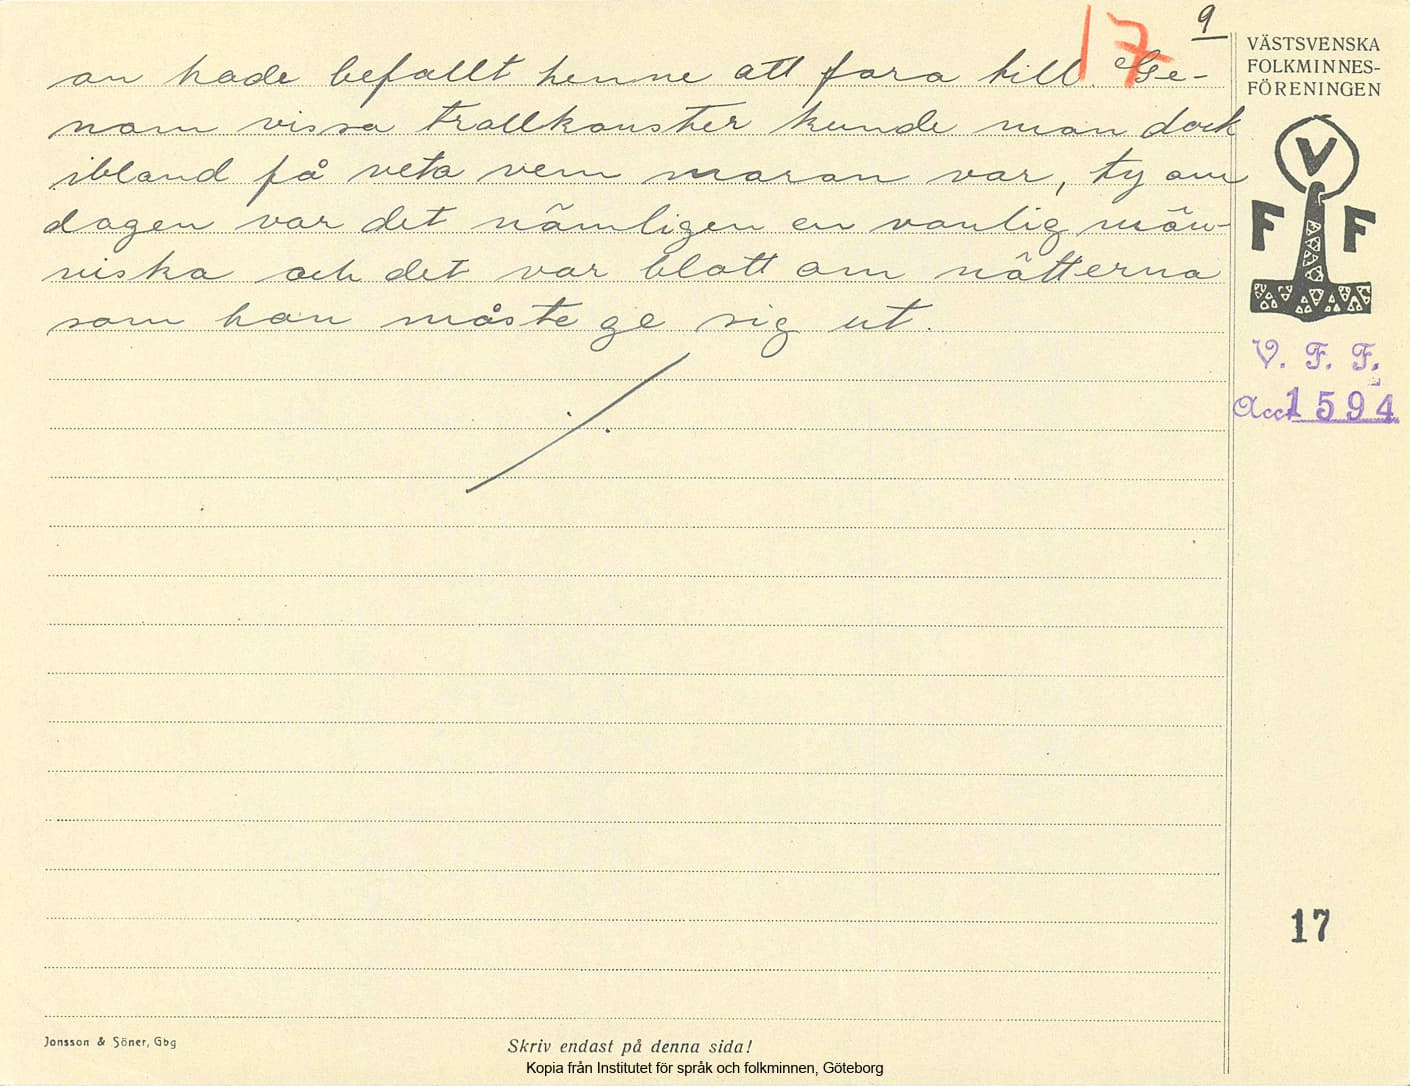 9
17
an hade befallt henne att fara till. Ge-
nom vissa trollkonster kunde man dock
ibland få veta vem maran var, ty om
dagen var det nämligen en vanlig män-
niska och det var blott om nätterna
som hon måste ge sig ut.
VÄSTSVENSKA
FOLKMINNES-
FÖRENINGEN
V
F F
V. F. F.
Acc. 1594
17
Jonsson & Söner, Gbg
Skriv endast på denna sida!
Kopia från Institutet för språk och folkminnen, Göteborg